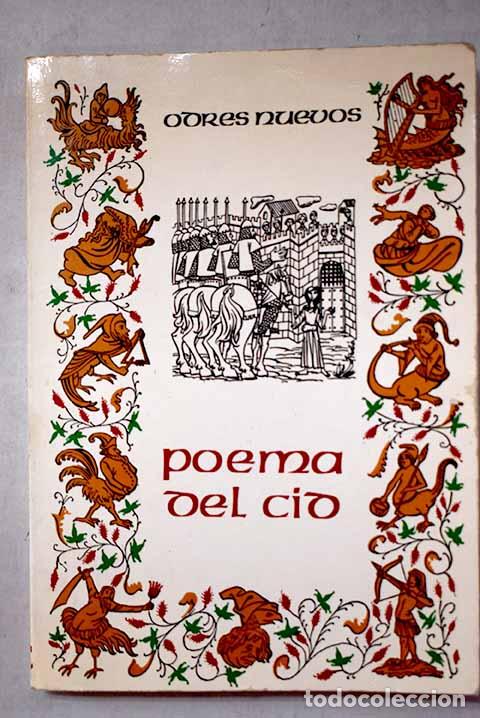 odres nuevos
poema
del cid
todocoleccion